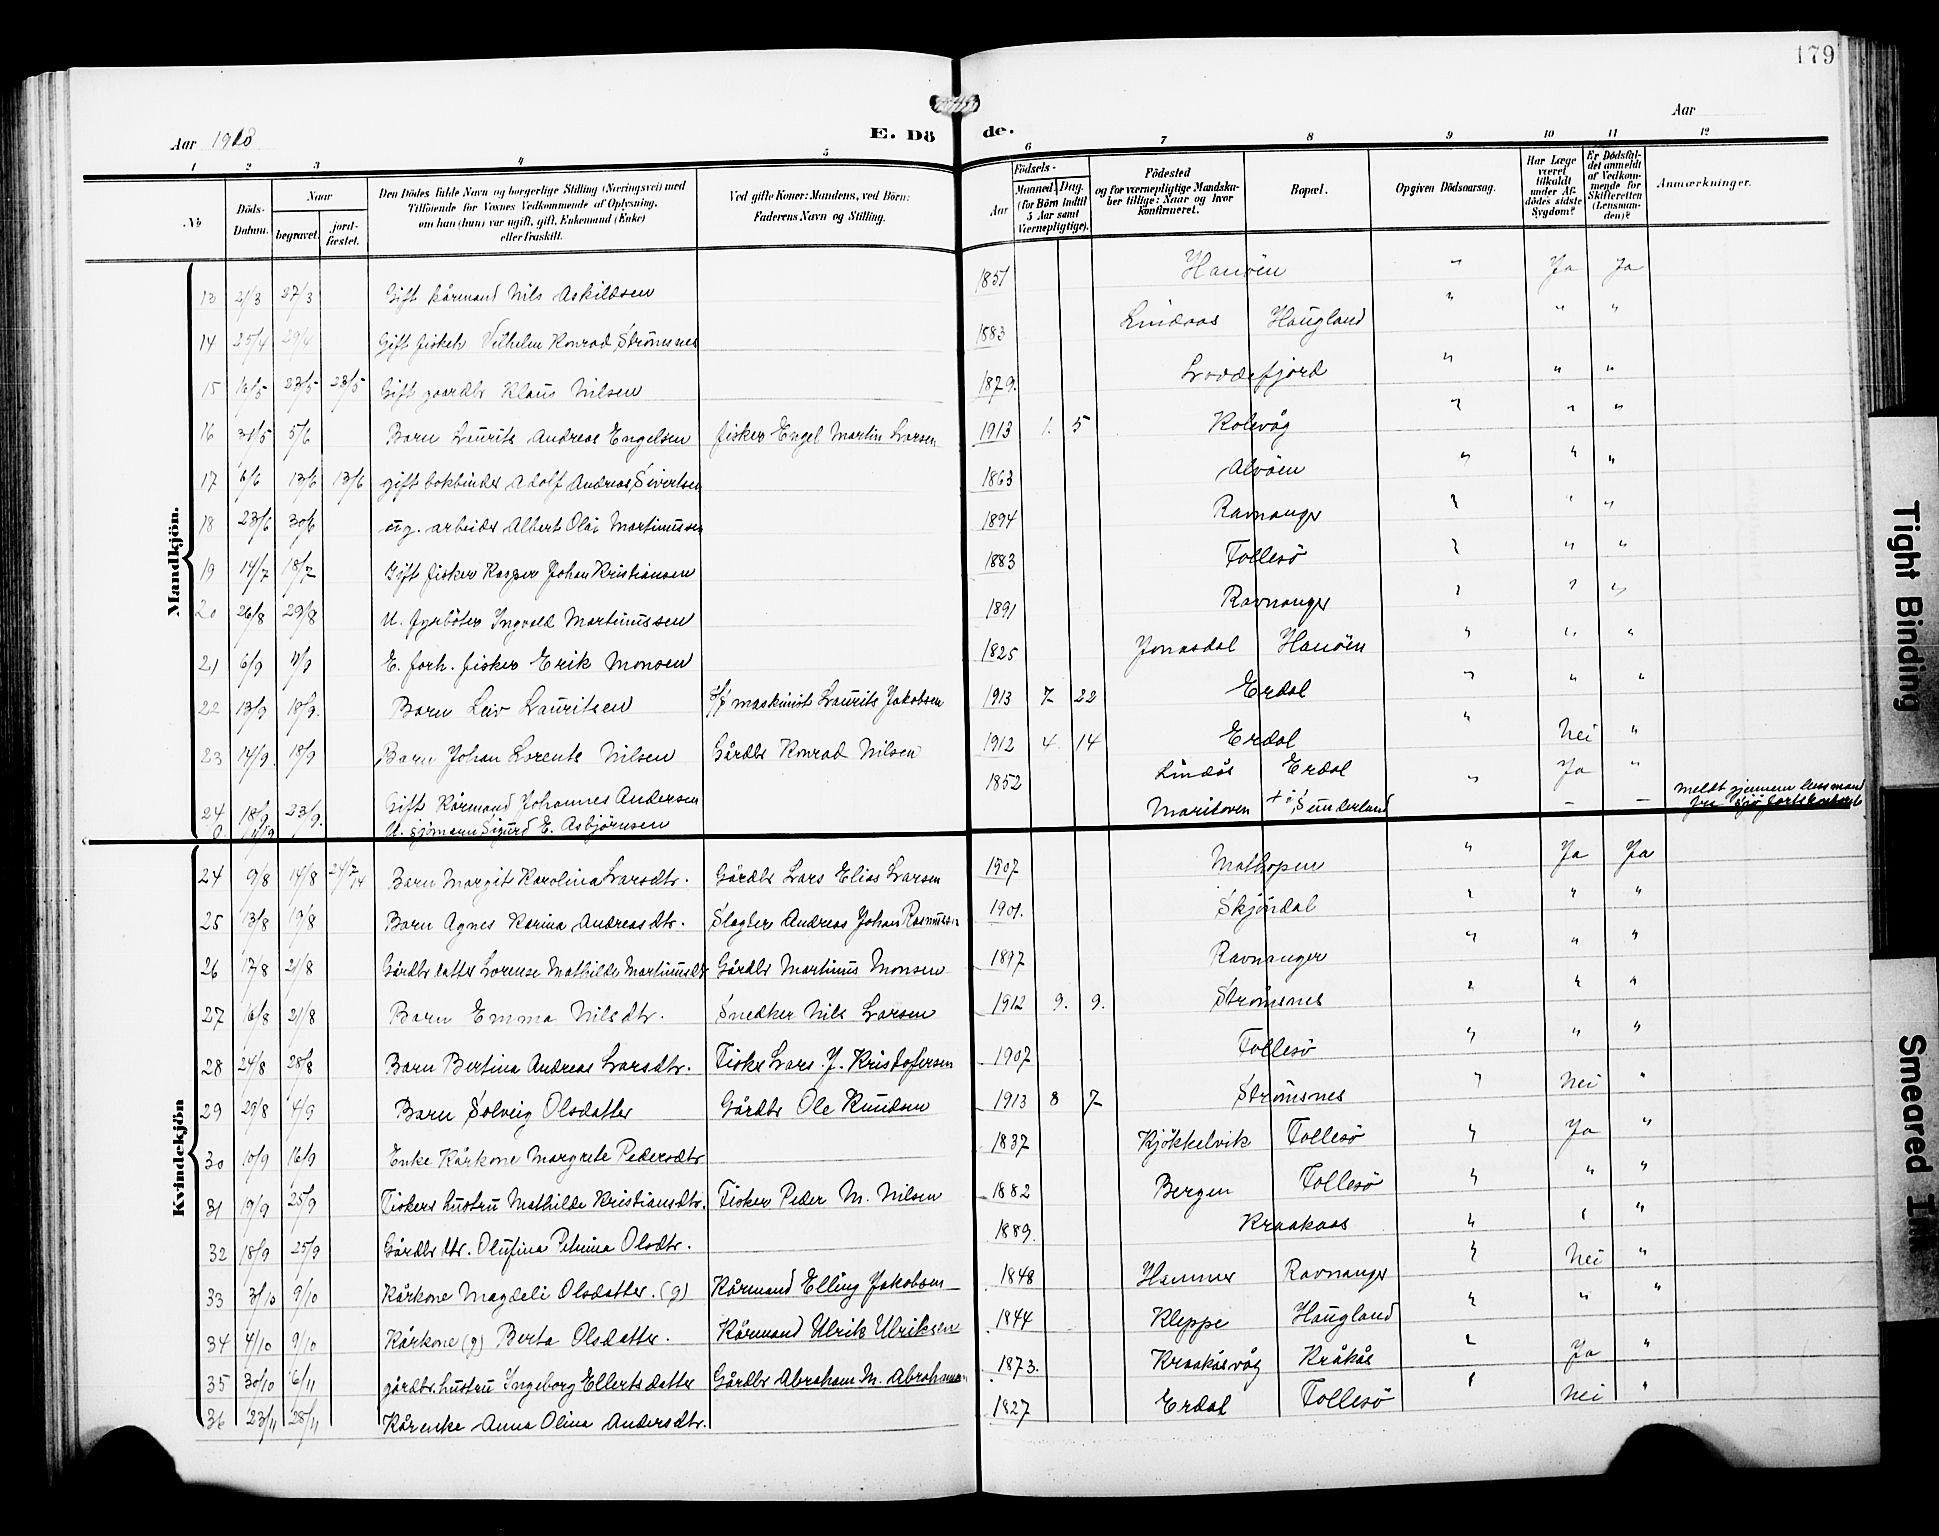 179
Aar 1913
E. Dö de.
Aar
1 2 3 4 5 6 7 8 9 10 11 12
No
Döds-Datum.
Naar
begravet.
jord-fæstet.
Den Dödes fulde Navn og borgerlige Stilling (Næringsvei) med Tilföiende for Voxnes Vedkommende af Oplysning, om han (hun) var ugift, gift, Enkemand (Enke) eller fraskilt.
Ved gifte Koner: Mandens, ved Börn: Faderens Navn og Stilling.
Födsels-
Aar
Maaned. Dag.
(for Börn indtil 5 Aar samt Værnepligtige).
Födested og for værnepligtige Mandskaber tillige: Naar og hvor konfirmeret.
Bopæl.
Opgiven Dödsaarsag.
Har Læge været tilkaldt under Afdödes sidste Sygdom?
Er Dödsfaldet anmeldt af Vedkommende for Skifteretten (Lensmanden)?
Anmærkninger.
Mandkjön.
13 21/3 27/3 Gift kårmand Nils Askildsen 1851 Hanöen " Ja Ja
14 25/4 29/4 Gift fisker Vilhelm Konrad Strömsnes 1883 Lindaas Haugland " " "
15 16/5 23/5 23/5 Gift gaardbr Klaus Nilsen 1879. Loddefjord " " "
16 31/5 5/6 Barn Laurits Andreas Engelsen fisker Engel Martin Larsen 1913 1. 5 Rolvåg " " "
17 6/6 13/6 13/6 gift bokbinder Adolf Andreas Sivertsen 1863 Alvöen " " "
18 23/6 30/6 ug. arbeider Albert Olai Martinussen 1894 Ravnanger " " "
19 14/7 18/7 Gift fisker Kasper Johan Kristiansen 1883 Follesö " " "
20 26/8 29/8 U. fyrböter Ingvald Martinussen 1891 Ravnanger " " "
21 6/9 11/9 E. forh. fisker Erik Monsen 1825 Jonasdal Hanöen " " "
22 13/9 18/9. Barn Leiv Lauritsen maskinist Laurits Jakobsen 1913 7 22 Erdal " " "
23 14/9. 18/9 Barn Johan Lorents Nilsen Gårdbr Konrad Nilsen 1912 4. 14 Erdal " Nei "
24 18/9 23/9. Gift Kårmand Johannes Andersen 1852 Lindås Erdal " Ja "
U. sjömann Sigurd E. Asbjörnsen Sunderland – – meldt gjennem lensmand
Kvindekjön
24 9/8 14/8 24/7 14 Barn Margit Karolina Larsdtr. Gårdbr Lars Elias Larsen 1907 Mathopen " Ja Ja
25 13/8 19/8 Barn Agnes Karina Andreasdtr. Slagter Andreas Johan Rasmussen 1901. Skjöndal " " "
26 17/8 21/8 Gårdbr datter Lorense Mathilde Martinusdtr Gårdbr Martinus Monsen 1897 Ravnanger " " "
27 16/8 21/8 Barn Emma Nilsdtr. Snedker Nils Larsen 1912 9. 9. Strömsnes " " "
28 24/8 28/8 Barn Bertina Andrea Larsdtr. Fisker Lars J. Kristofersen 1907 Follesö " " "
29 29/8 4/9 Barn Solveig Olsdatter Gårdbr Ole Knudsen 1913 8 7 Strömsnes " Nei "
30 10/9 16/9 Enke Kårkone Margrete Pedersdtr 1837 Kjökkelvik Follesö " Ja "
31 19/9 25/9 Fiskers hustru Mathilde Kristiansdtr. Fisker Peder M. Nilsen 1882 Bergen Follesö " " "
32 18/9 25/9 Gårdbr dtr. Olufina Petrina Olsdtr. 1889. Kraakaas " " "
33 3/10 9/10 Kårkone Magdeli Olsdatter. (g) Kårmand Elling Jakobsen 1848 Hammer Ravnanger " Nei "
34 4/10 9/10 Kårkone (g) Berta Olsdatter. Kårmand Ulrik Ulriksen 1844 Kleppe Haugland " " "
35 30/10 6/11 gårdbr.hustru Ingeborg Ellertsdatter Gårdbr Abraham M. Abrahamsen 1873. Kraakåsvåg Kråkås " Ja "
36 23/11 28/11 Kårenke Anna Olina Andersdtr. 1827 Erdal Follesö " Nei "
Tight Binding
Smeared Ink